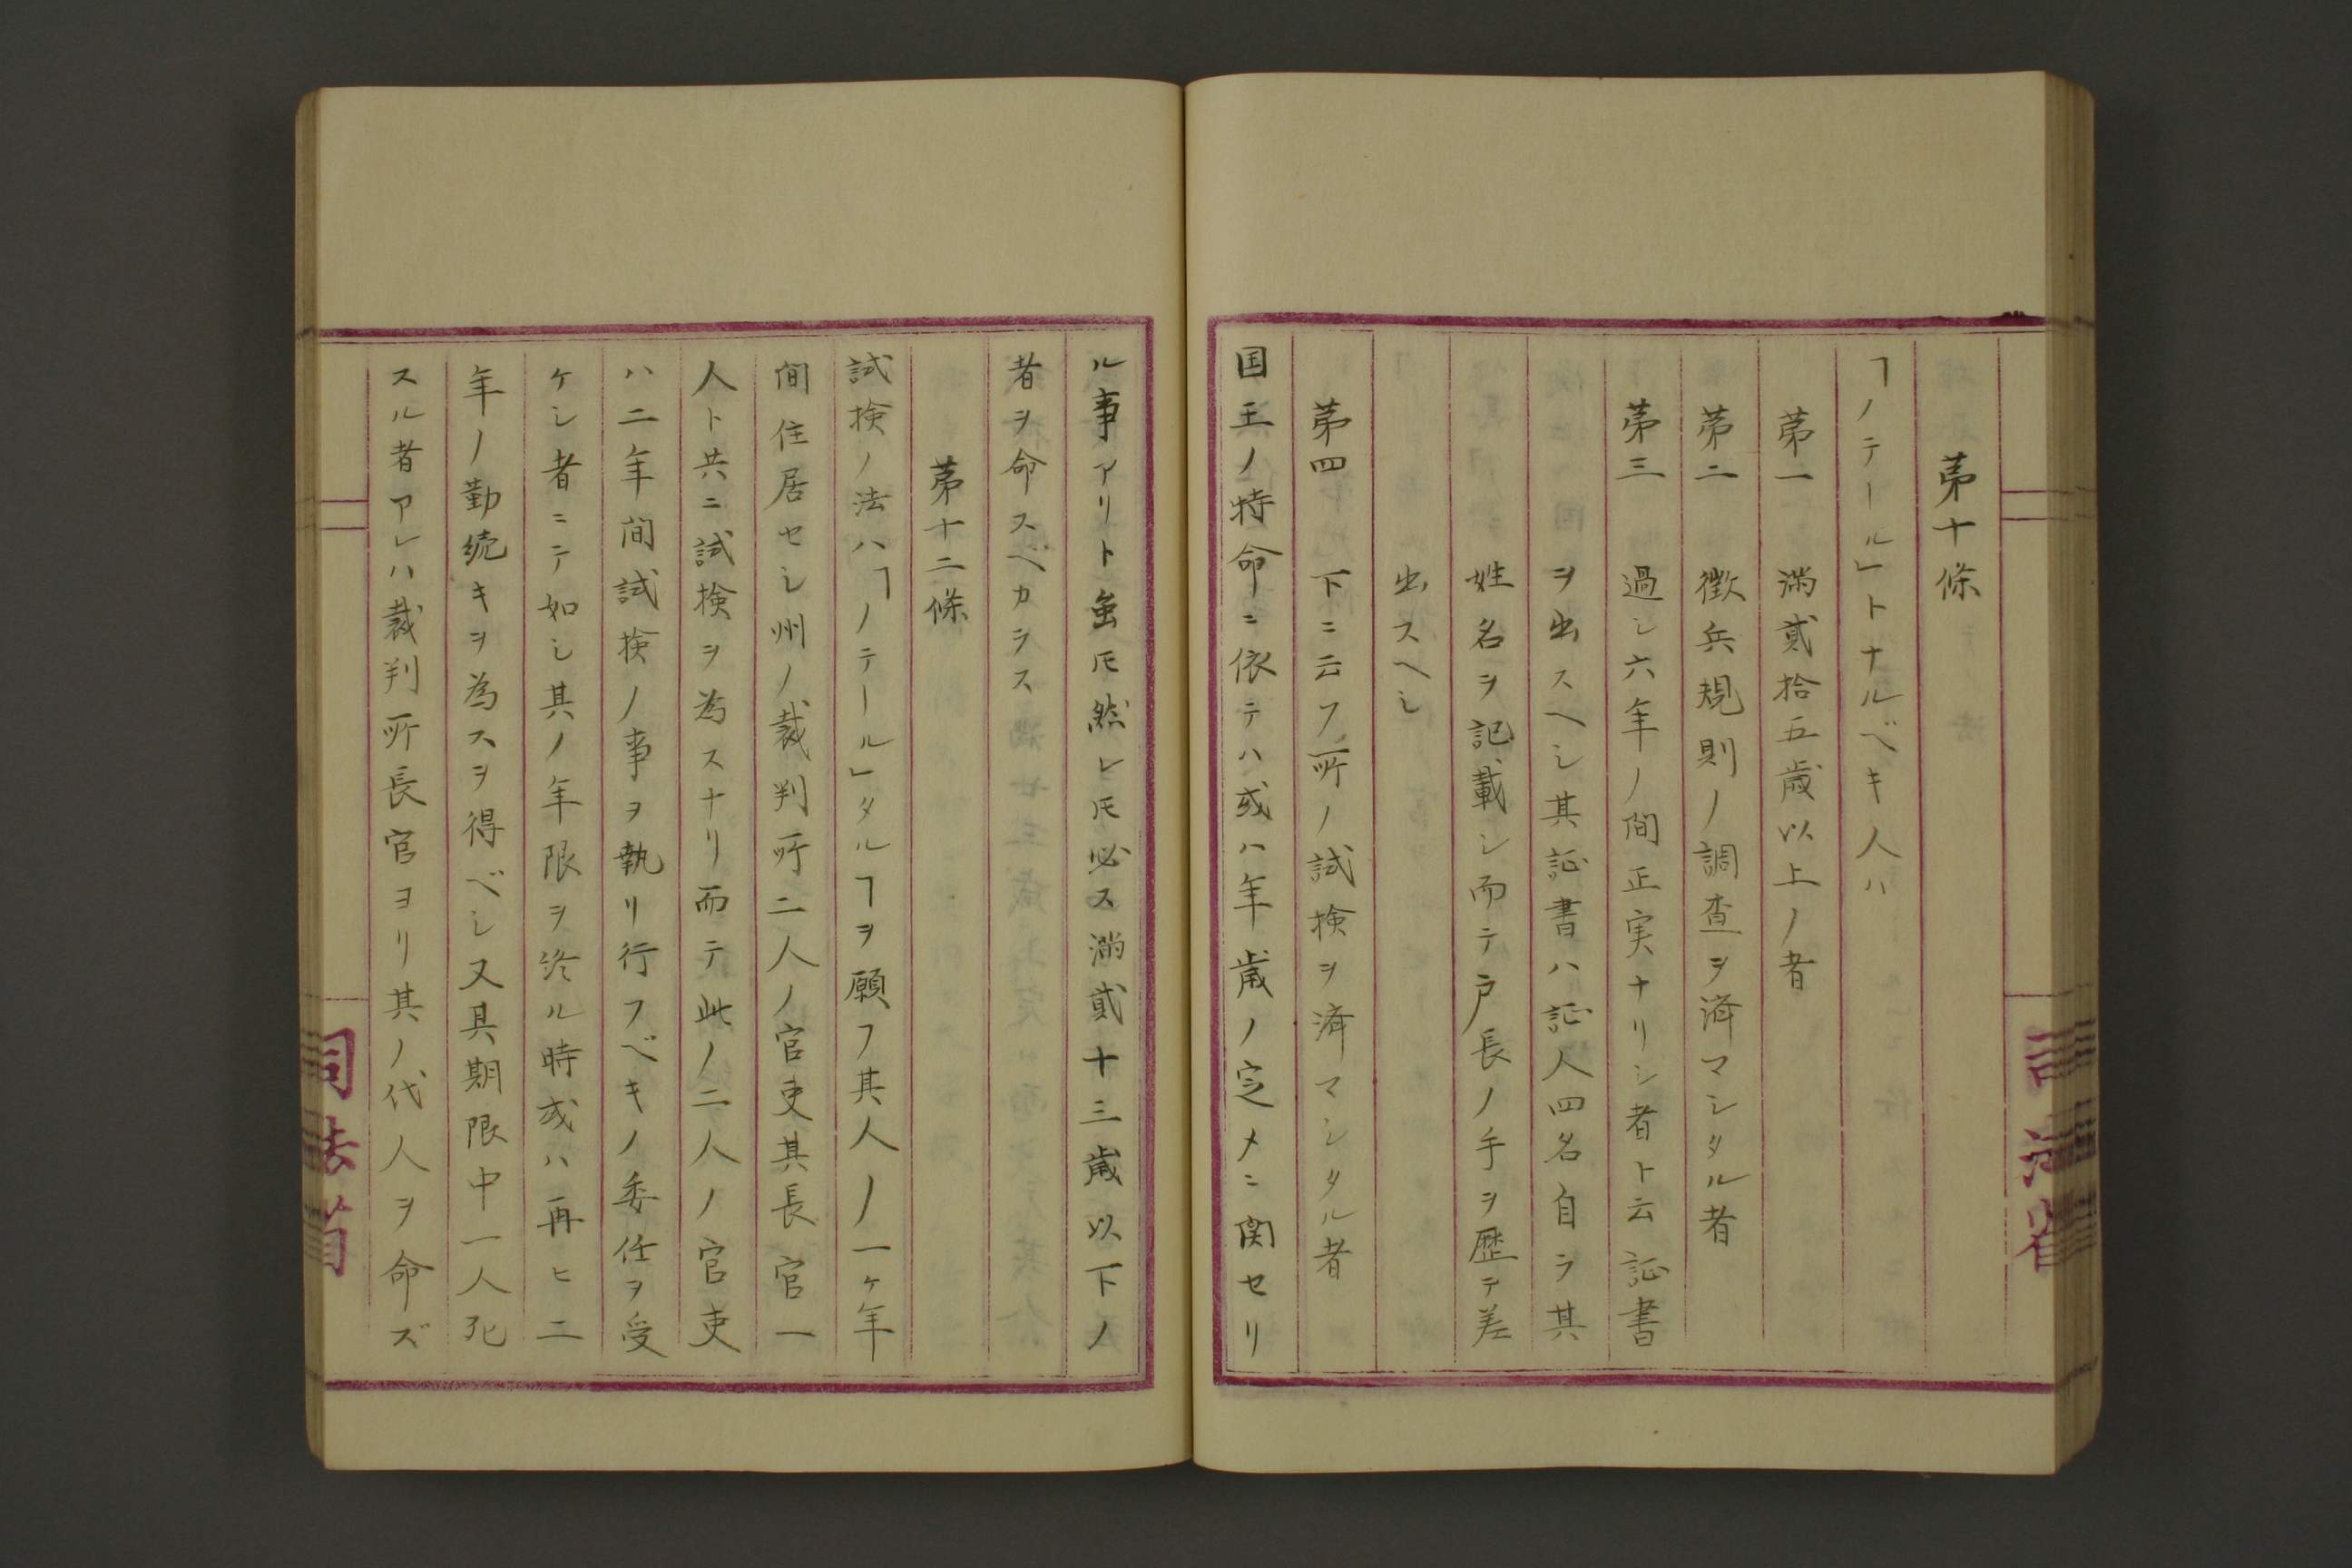 第十條
「ノテール」トナルベキ人ハ
第一 満貳拾五歳以上ノ者
第二 徴兵規則ノ調査ヲ済マシタル者
第三 過シ六年ノ間正実ナリシ者ト云証書
ヲ出スヘシ其証書ハ証人四名自ラ其
姓名ヲ記載シ而テ戸長ノ手ヲ歴テ差
出スヘシ
第四 下ニ云フ所ノ試検ヲ済マシタル者
国王ノ特命ニ依テハ或ハ年歳ノ定メニ関セリ
ル事アリト虽𪜈然レ𪜈必ス満貳十三歳以下ノ
者ヲ命スベカラス
第十二條
試検ノ法ハ「ノテール」タルヿヲ願フ其人ノ一ケ年
間住居セシ州ノ裁判所二人ノ官吏其長官一
人ト共ニ試検ヲ為スナリ而テ此ノ二人ノ官吏
ハ二年間試検ノ事ヲ執リ行フベキノ委任ヲ受
ケシ者ニテ如シ其ノ年限ヲ終ル時或ハ再ヒ二
年ノ勤続キヲ為スヲ得ベシ又其期限中一人死
スル者アレハ裁判所長官ヨリ其ノ代人ヲ命ズ
司法省